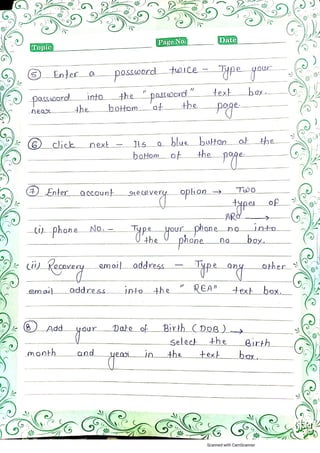 Topic Page No. Date
(5) Enter a password twice – Type your
password into the "password" text box.
near the bottom of the page.
(6) Click next – Its a blue button at the
bottom of the page
(7) Enter account recovery option → Two
types of
ARO →
(i) phone No. – Type your phone no into
the phone no box.
(ii) Recovery email address – Type any other
email address into the "REA" text box.
(8) Add your Date of Birth (DOB) →
select the Birth
month and year in the text box.
Scanned with CamScanner